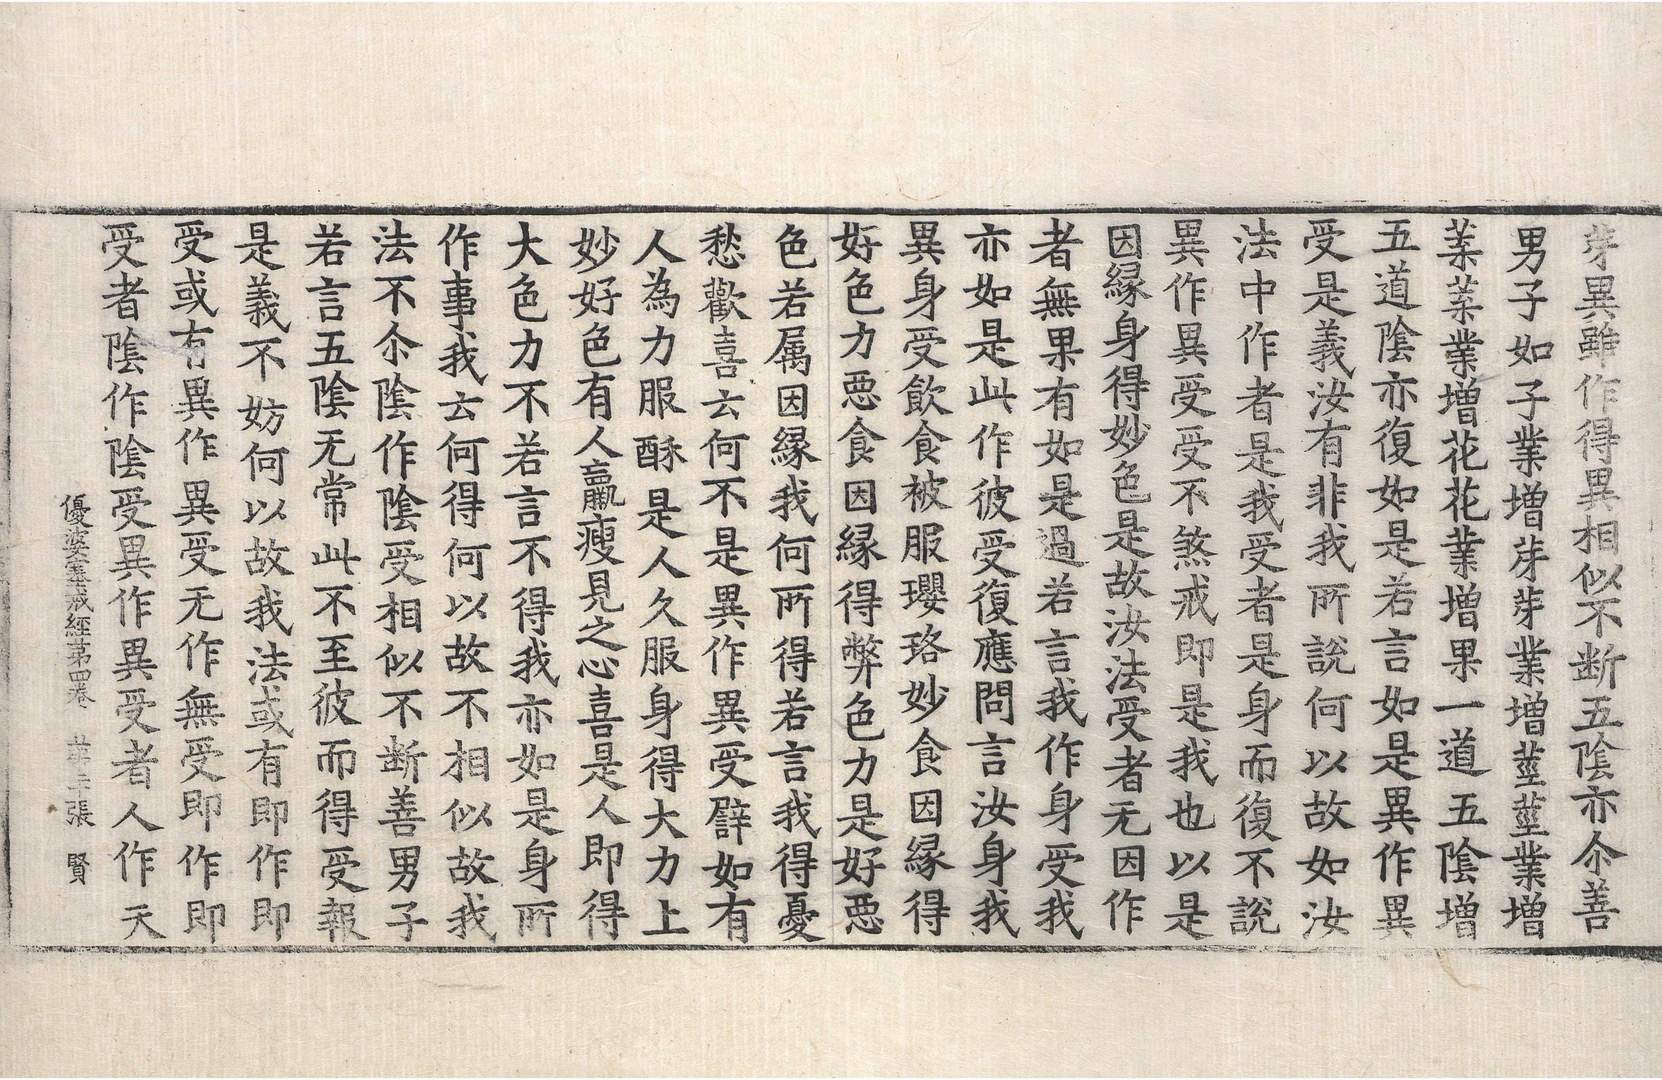 芽異雖作得異相似不断五陰亦尒善
男子如子業増芽芽業増莖莖業増
葉葉業増花花業増果一道五陰増
五道陰亦復如是若言如是異作異
受是義汝有非我所說何以故如汝
法中作者是我受者是身而復不說
異作異受受不煞戒即是我也以是
因縁身得妙色是故汝法受者无因作
者無果有如是過若言我作身受我
亦如是此作彼受復應問言汝身我
異身受飲食被服瓔珞妙食因縁得
好色力惡食因縁得弊色力是好惡
色若属因縁我何所得若言我得憂
愁歡喜云何不是異作異受譬如有
人為力服酥是人久服身得大力上
妙好色有人羸瘦見之心喜是人即得
大色力不若言不得我亦如是身所
作事我云何得何以故不相似故我
法不尒陰作陰受相似不断善男子
若言五陰无常此不至彼而得受報
是義不妨何以故我法或有即作即
受或有異作異受无作無受即作即
受者陰作陰受異作異受者人作天
優婆塞戒經第四卷 張 賢